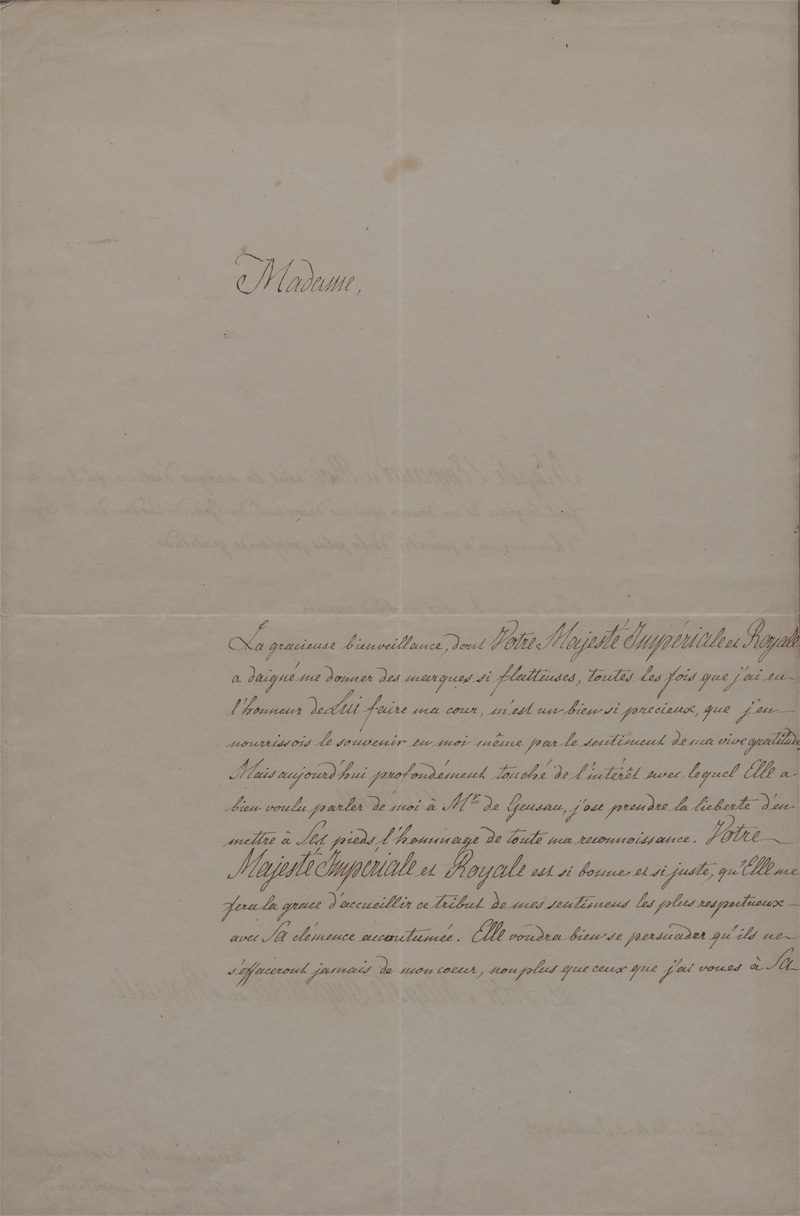 Madame,
La gracieuse bienveillance, dont Votre Majesté Impériale et Royale
a daigné me donner des marques si flatteuses, toutes les fois que j'ai eu
l'honneur de Lui faire ma cour, m'est un bien si precieux, que j'en
nourrissois le souvenir en moi même par le sentiment de ma vive gratitude.
Mais aujourd'hui profondément touché de l'intérêt avec lequel Elle a
bien voulu parler de moi à Mr. de Geusau, j'ose prendre la lieberté d'en
mettre à Ses pieds l'hommage de toute ma reconnoissance. Votre
Majesté Impériale et Royale est si bonne et si juste, qu'Elle me
fera la grace d'accueillir ce tribut de mes sentimens les plus respectueux
avec Sa clémence accoutumée. Elle voudra bien se persuader qu'ils ne
s'effaceront jamais de mon coeur, non plus que ceux que j'ai voues à Sa